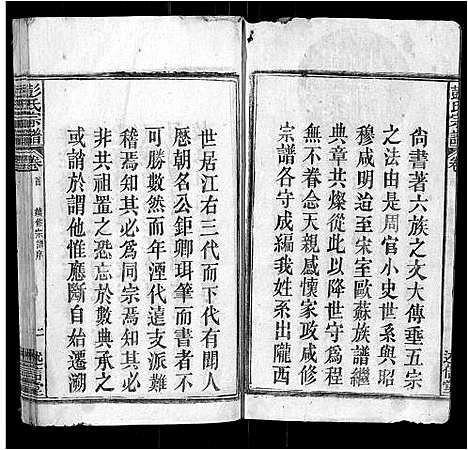 彭氏宗譜
卷
尚書著六族之文大傳垂五宗
之法由是周官小史世系與昭
穆咸明迨至宋室歐蘇族譜繼
典章共燦從此以降世守爲程
無不眷念天親感懷家政咸修
宗譜各守成編我姓系出隴西
述信堂
世居江右三代而下有聞人
歷朝名公鉅卿珥筆而書不
可勝數然而年湮代遠支派難
稽焉知其必爲同宗焉知其必
非共祖置之恐忘於數典承之
或誚於諂他惟應斷自始遷溯
彭氏宗譜
卷首
續修宗譜序
一
述信堂